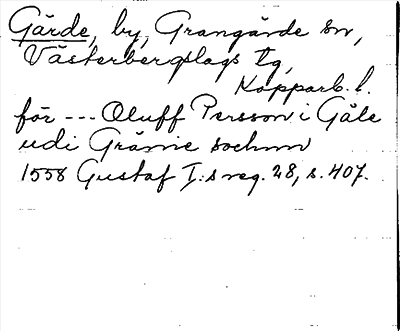 Gärde, by, Grangärde sn,
Västerbergslags tg,
Kopparb. l.
för --- Oluff Persson i Gåle
udi Gränie sochnn
1558 Gustaf I:s reg. 28, s. 407.